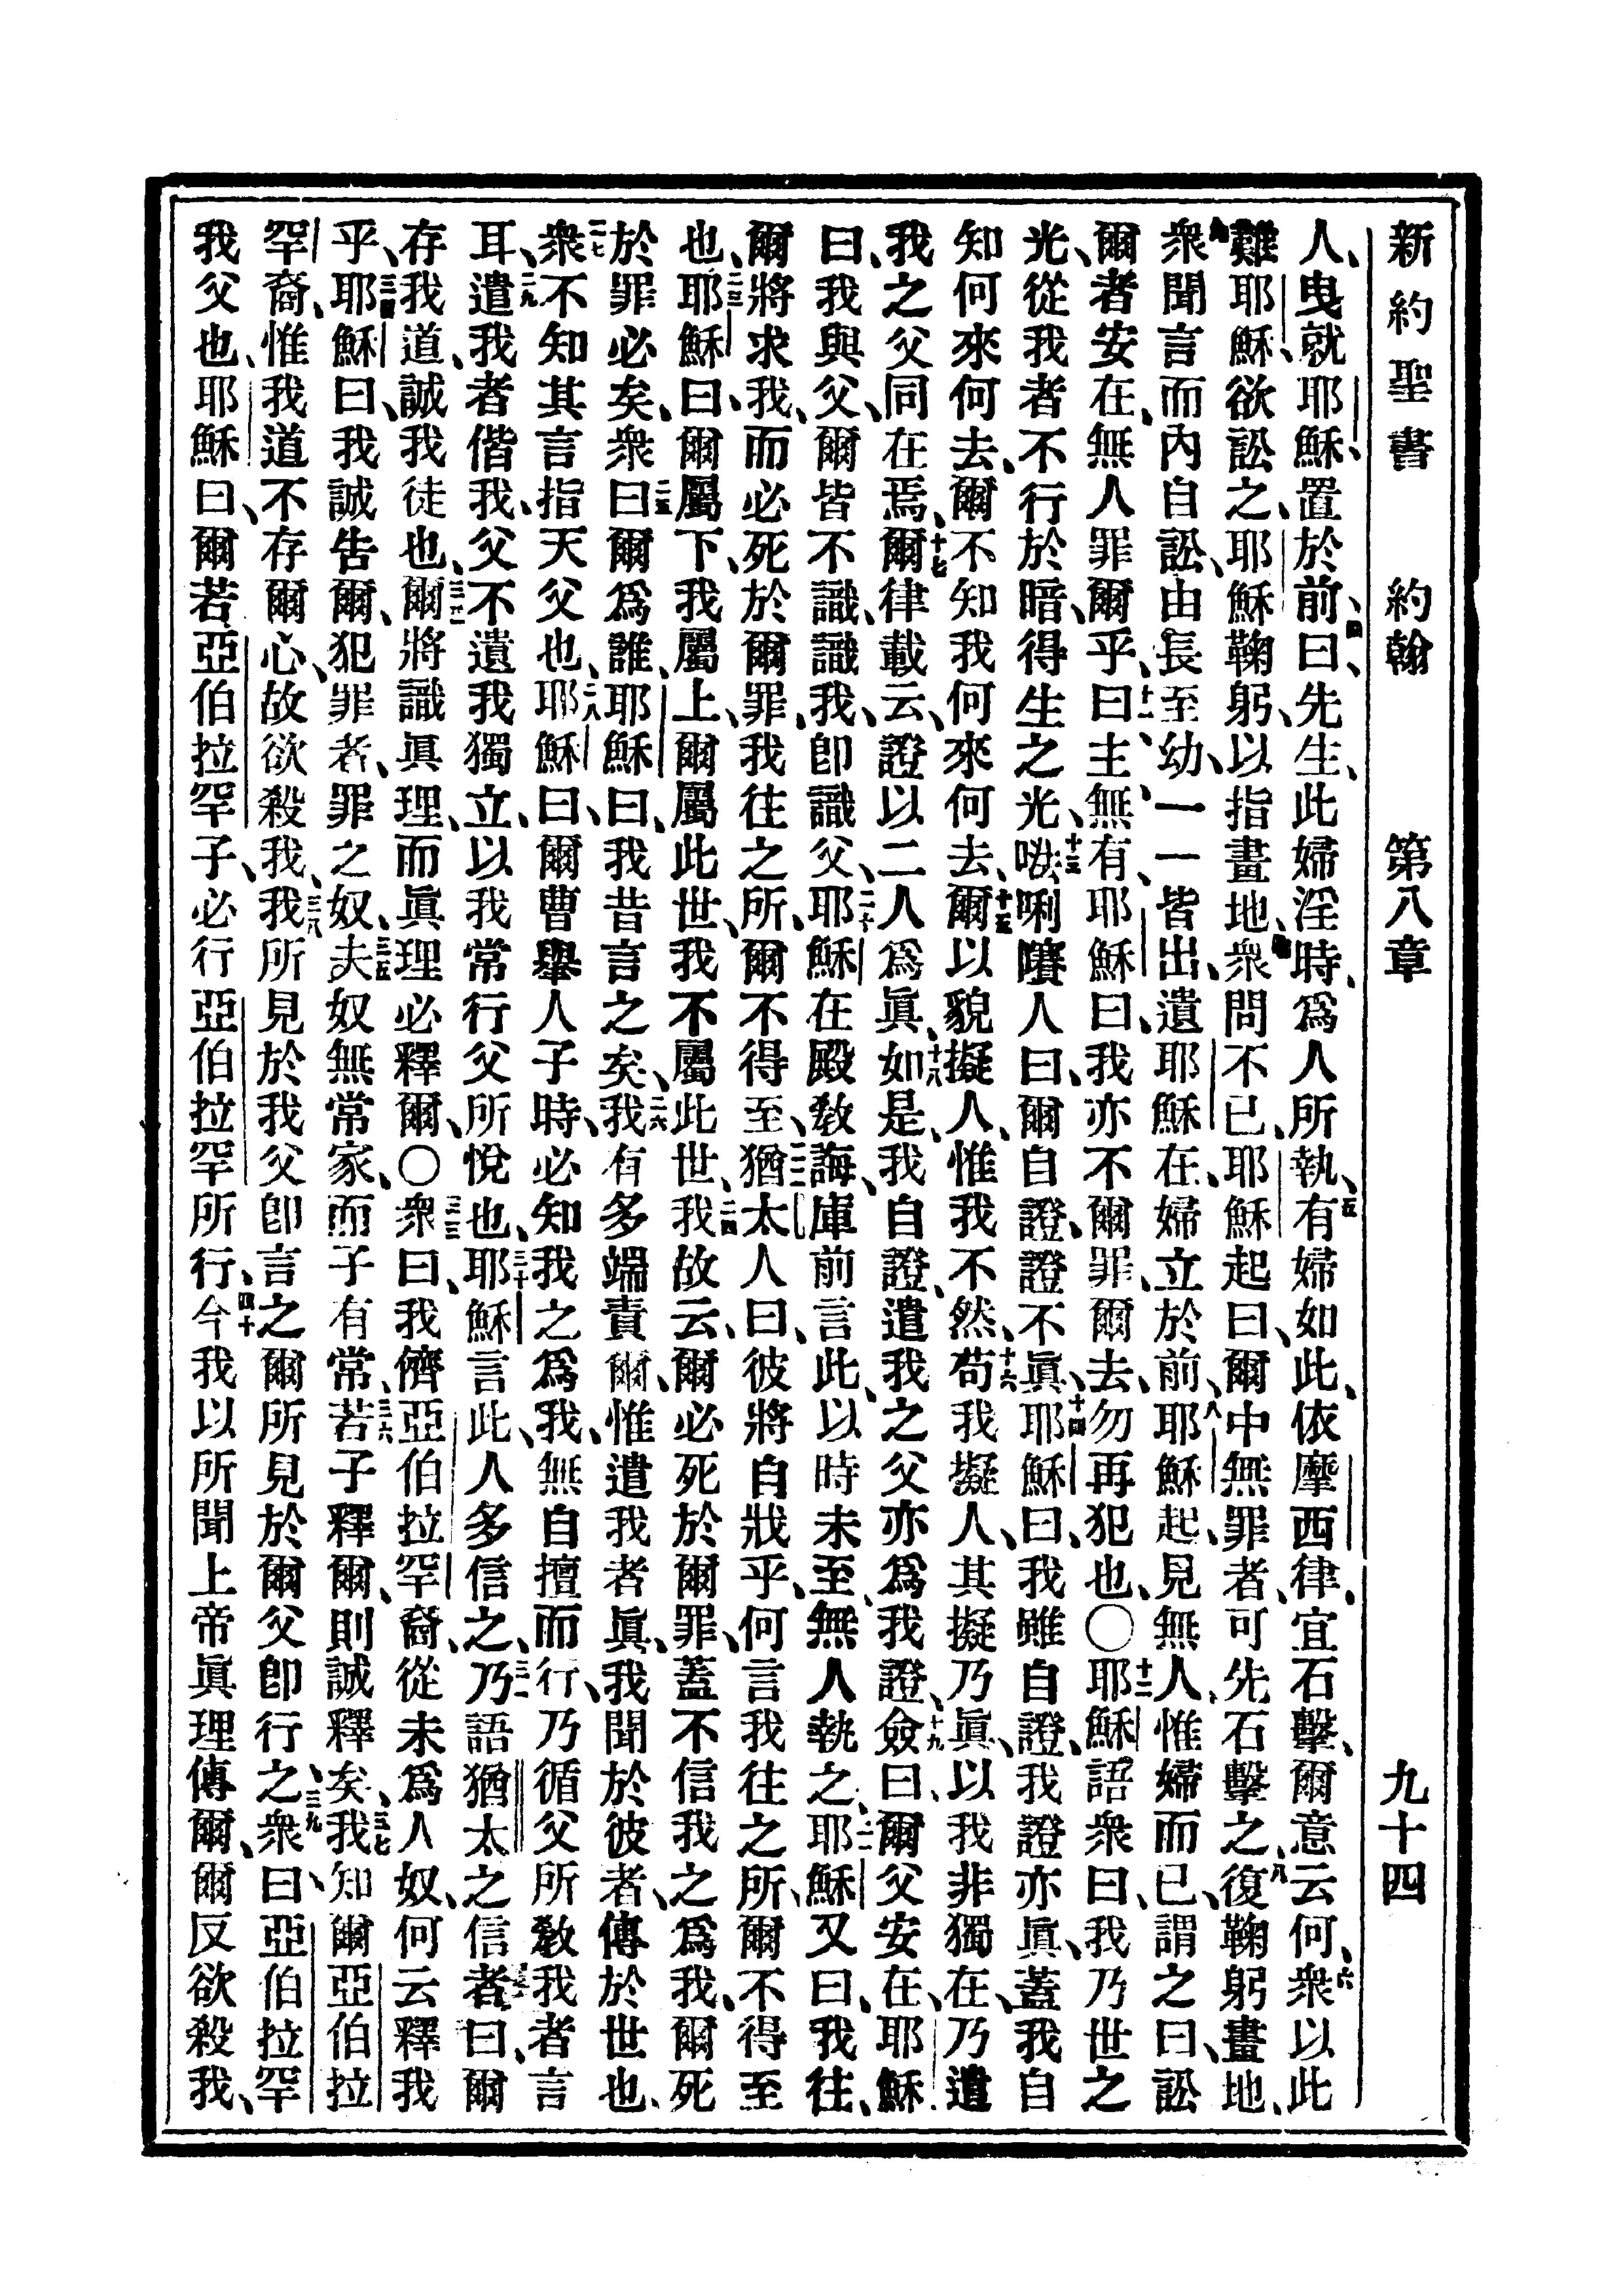 新約聖書 約翰 第八章 九十四
人、曳就耶穌、置於前、四曰、先生、此婦淫時、爲人所執、五有婦如此、依摩西律、宜石擊、爾意云何、六衆以此
難耶穌、欲訟之、耶穌鞠躬、以指畫地、衆問不已、耶穌起曰、爾中無罪者、可先石擊之、八復鞠躬畫地、
衆聞言而內自訟、由長至幼、一一皆出、遺耶穌在、婦立於前、耶穌起、見無人、惟婦而已、謂之曰、訟
爾者安在、無人罪爾乎、十一曰、主、無有、耶穌曰、我亦不爾罪、爾去、勿再犯也、〇十二耶穌語衆曰、我乃世之
光、從我者不行於暗、得生之光、十三𠵽唎㘔人曰、爾自證、證不眞、十四耶穌曰、我雖自證、我證亦眞、蓋我自
知何來何去、爾不知我何來何去、十五爾以貌擬人、惟我不然、十六苟我擬人、其擬乃眞、以我非獨在、乃遣
我之父同在焉、十七爾律載云、證以二人爲眞、十八如是、我自證、遣我之父亦爲我證、十九僉曰、爾父安在、耶穌
曰、我與父、爾皆不識、識我、卽識父、二十耶穌在殿敎誨、庫前言此、以時未至、無人執之、二一耶穌又曰、我往、
爾將求我、而必死於爾罪、我往之所、爾不得至、二二猶太人曰、彼將自戕乎、何言我往之所、爾不得至
也、二三耶穌曰、爾屬下、我屬上、爾屬此世、我不屬此世、二四我故云、爾必死於爾罪、蓋不信我之爲我、爾死
於罪必矣、衆曰、二五爾爲誰、耶穌曰、我昔言之矣、二六我有多端責爾、惟遣我者眞、我聞於彼者、傳於世也、
二七衆不知其言指天父也、二八耶穌曰、爾曹舉人子時、必知我之爲我、無自擅而行、乃循父所敎我者言
耳、二九遣我者偕我、父不遺我獨立、以我常行父所悅也、三十耶穌言此、人多信之、三一乃語猶太之信者曰、爾
存我道、誠我徒也、三二爾將識眞理、而眞理必釋爾、〇三三衆曰、我儕亞伯拉罕裔、從未爲人奴、何云釋我
乎、三四耶穌曰、我誠告爾、犯罪者、罪之奴、三五夫奴無常家、而子有常、三六若子釋爾、則誠釋矣、三七我知爾亞伯拉
罕裔、惟我道不存爾心、故欲殺我、三八我所見於我父卽言之、爾所見於爾父卽行之、三九衆曰、亞伯拉罕
我父也、耶穌曰、爾若亞伯拉罕子、必行亞伯拉罕所行、四十今我以所聞上帝眞理傳爾、爾反欲殺我、